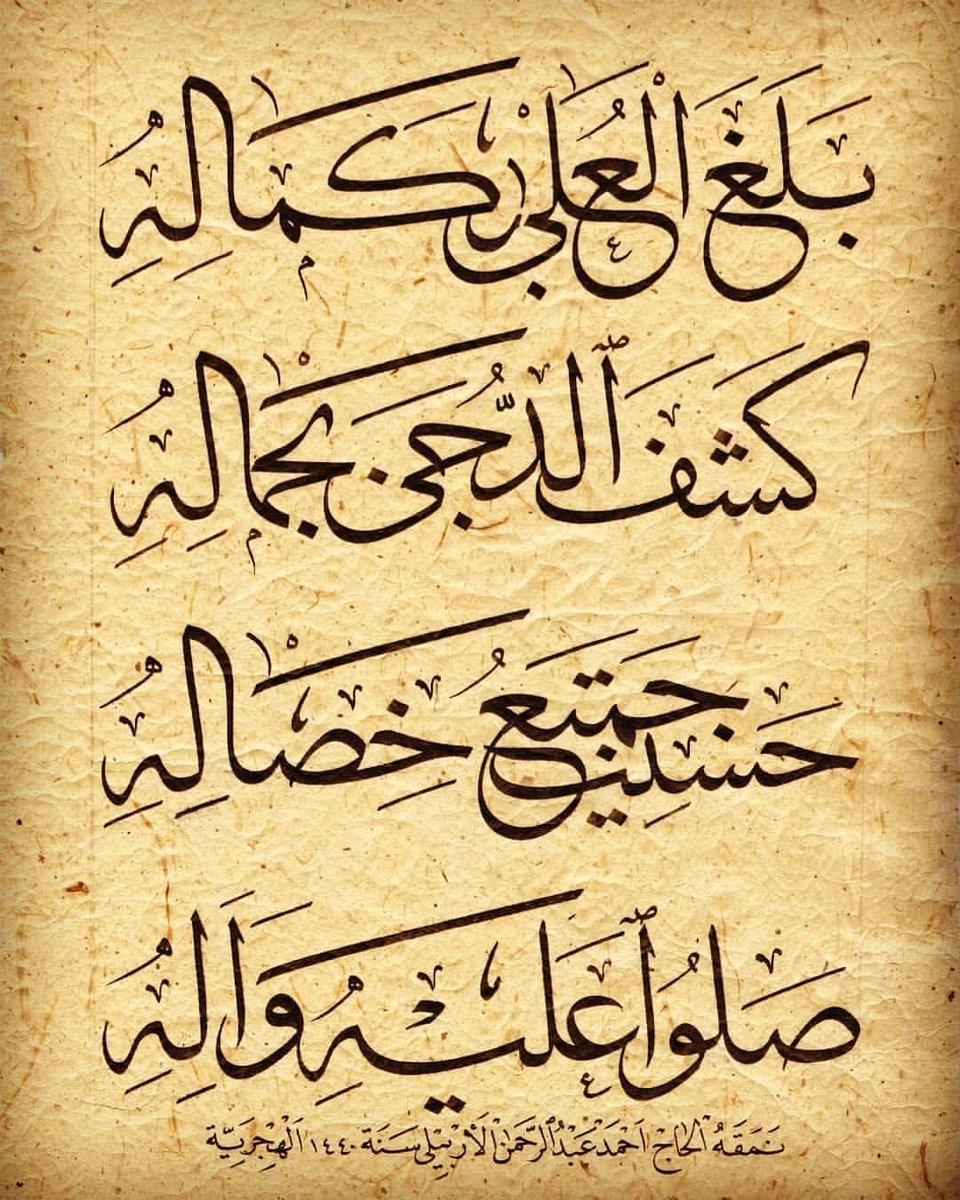 بَلَغَ الْعُلَى بِكَمَالِهِ
كَشَفَ ٱلدُّجَى بِجَمَالِهِ
حَسُنَتْ جَمِيعُ خِصَالِهِ
صَلُّوا عَلَيْهِ وَآلِهِ
نَمَقَهُ الْحَاجْ اَحْمَدْ عَبْدُ ٱلرَّحْمٰنْ الْأَرْبِيلِي سَنَةَ ١٤٤٠ الْهِجْرِيَّة